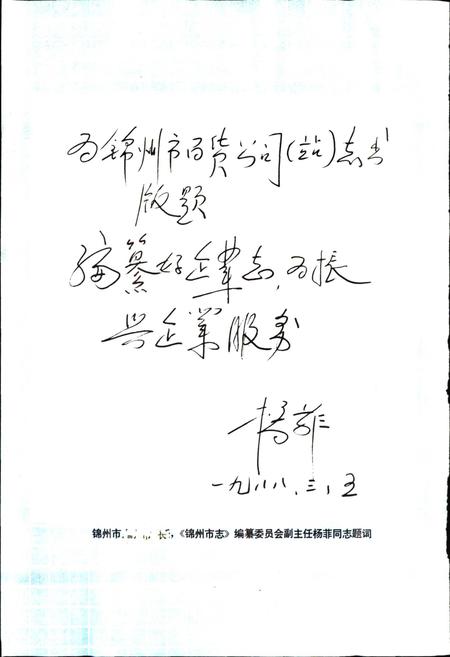 为锦州市百货公司(站)志出
版题
编纂好企业志,为振
兴企業服务
杨菲
一九八八.三.五
锦州市 长,《锦州市志》编纂委员会副主任杨菲同志题词